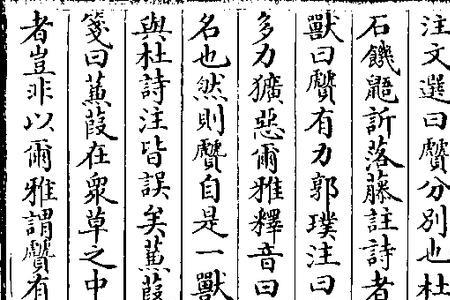 注文選曰贙分別也杜
石饑鼯訴落藤註詩者
獸曰贙有力郭璞注曰
多力獷惡爾雅釋音曰
名也然則贙自是一獸
與杜詩注皆誤矣蒹葭
箋曰蒹葭在眾草之中
者豈非以爾雅謂贙有